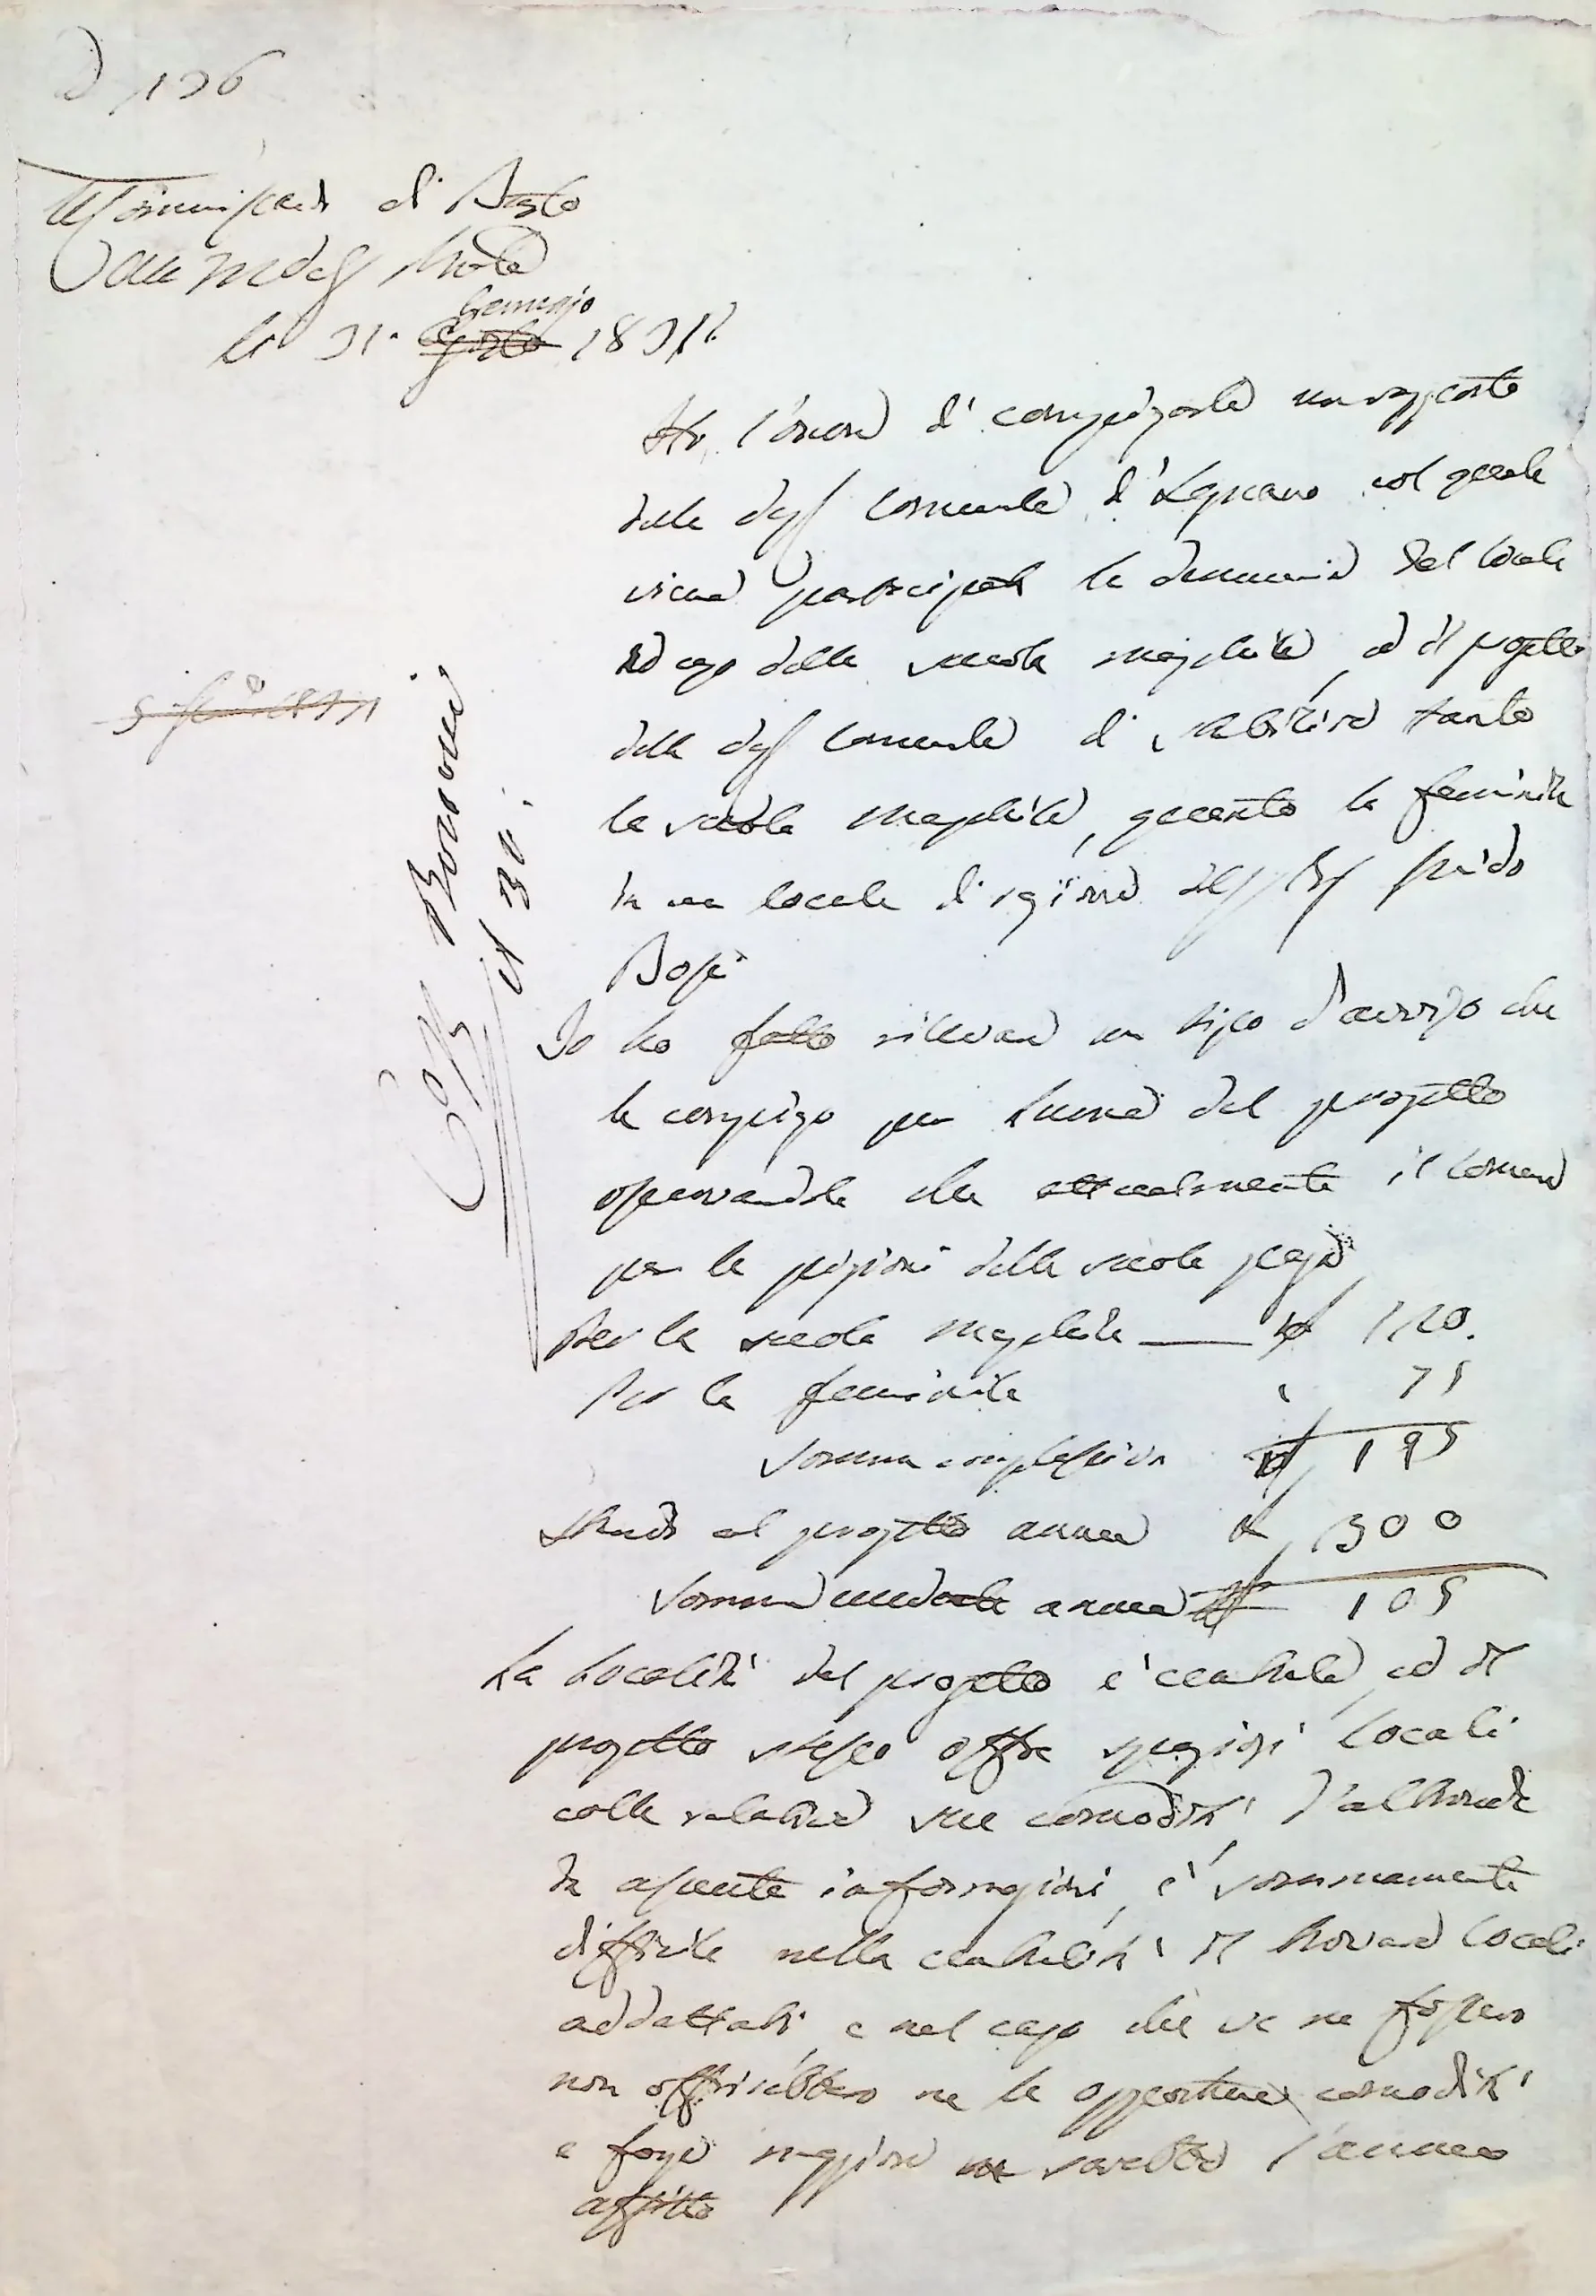 136
di Busto
li 31. Gennajo 1831.
Ho l'onore di compiegarle un rapporto
della Dep. Comunale di Legnano col quale
viene partecipata la denuncia del locale
ad uso della scuola maschile, ed il progetto
della Dep. Comunale di stabilire tanto
la scuola maschile, quanto la feminile
in un locale di ragione del
Bossi
Io ho fatto rilevare un tipo d'avviso che
le compiego per lume del progetto
osservandole che attualmente il Comune
per le pigioni delle scuole paga
Per la scuola maschile — 120.
Per la feminile 75
Somma complessiva 195
Stando al progetto annue 300
Somma annua 105
La località del progetto è centrale, ed il
progetto stesso offre spaziosi locali
colle relative sue comodità, d'altronde
da assunte informazioni, è sommamente
difficile nella centralità il trovare locali
addattati, e nel caso che ve ne fossero
non offrirebbero ne le opportune comodità
e forse maggiore ne sarebbe l'annuo
affitto
il 30.